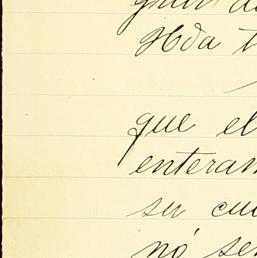 Hda t
que el
enteram
su cu
nó se